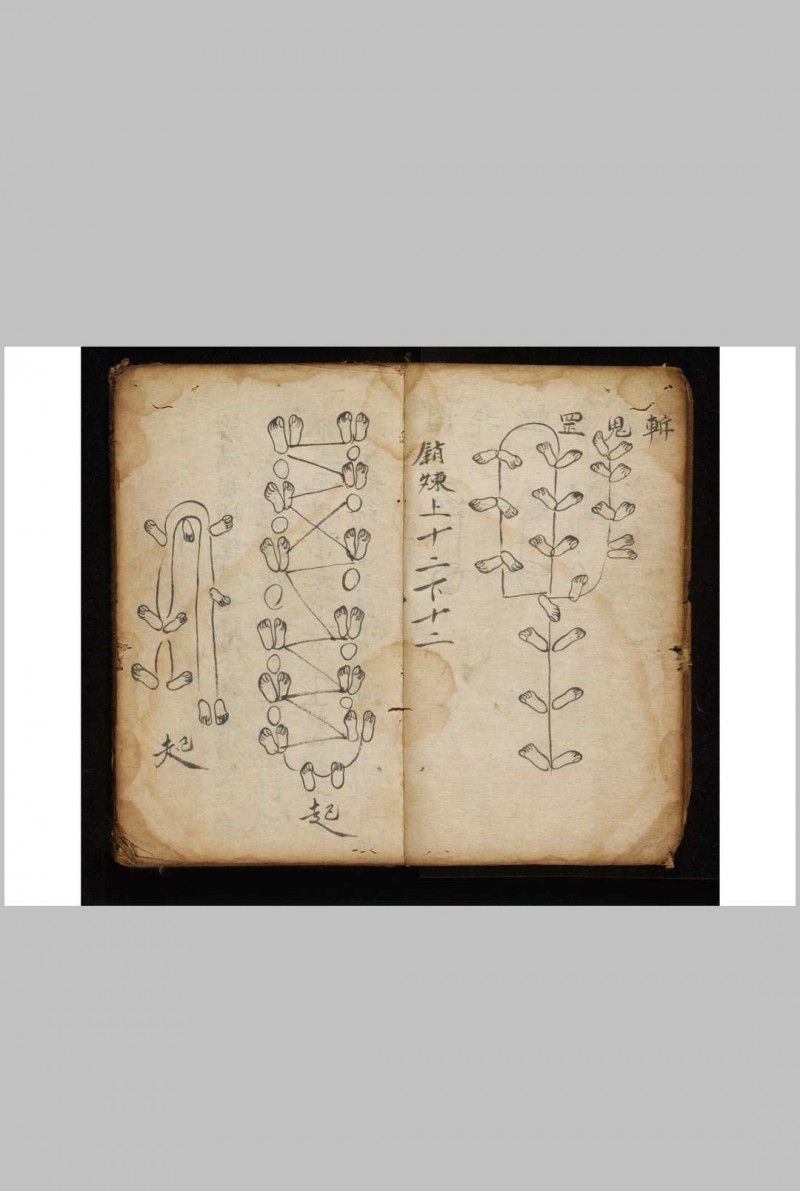 斬鬼罡
銷煉上十二下十二
起
起